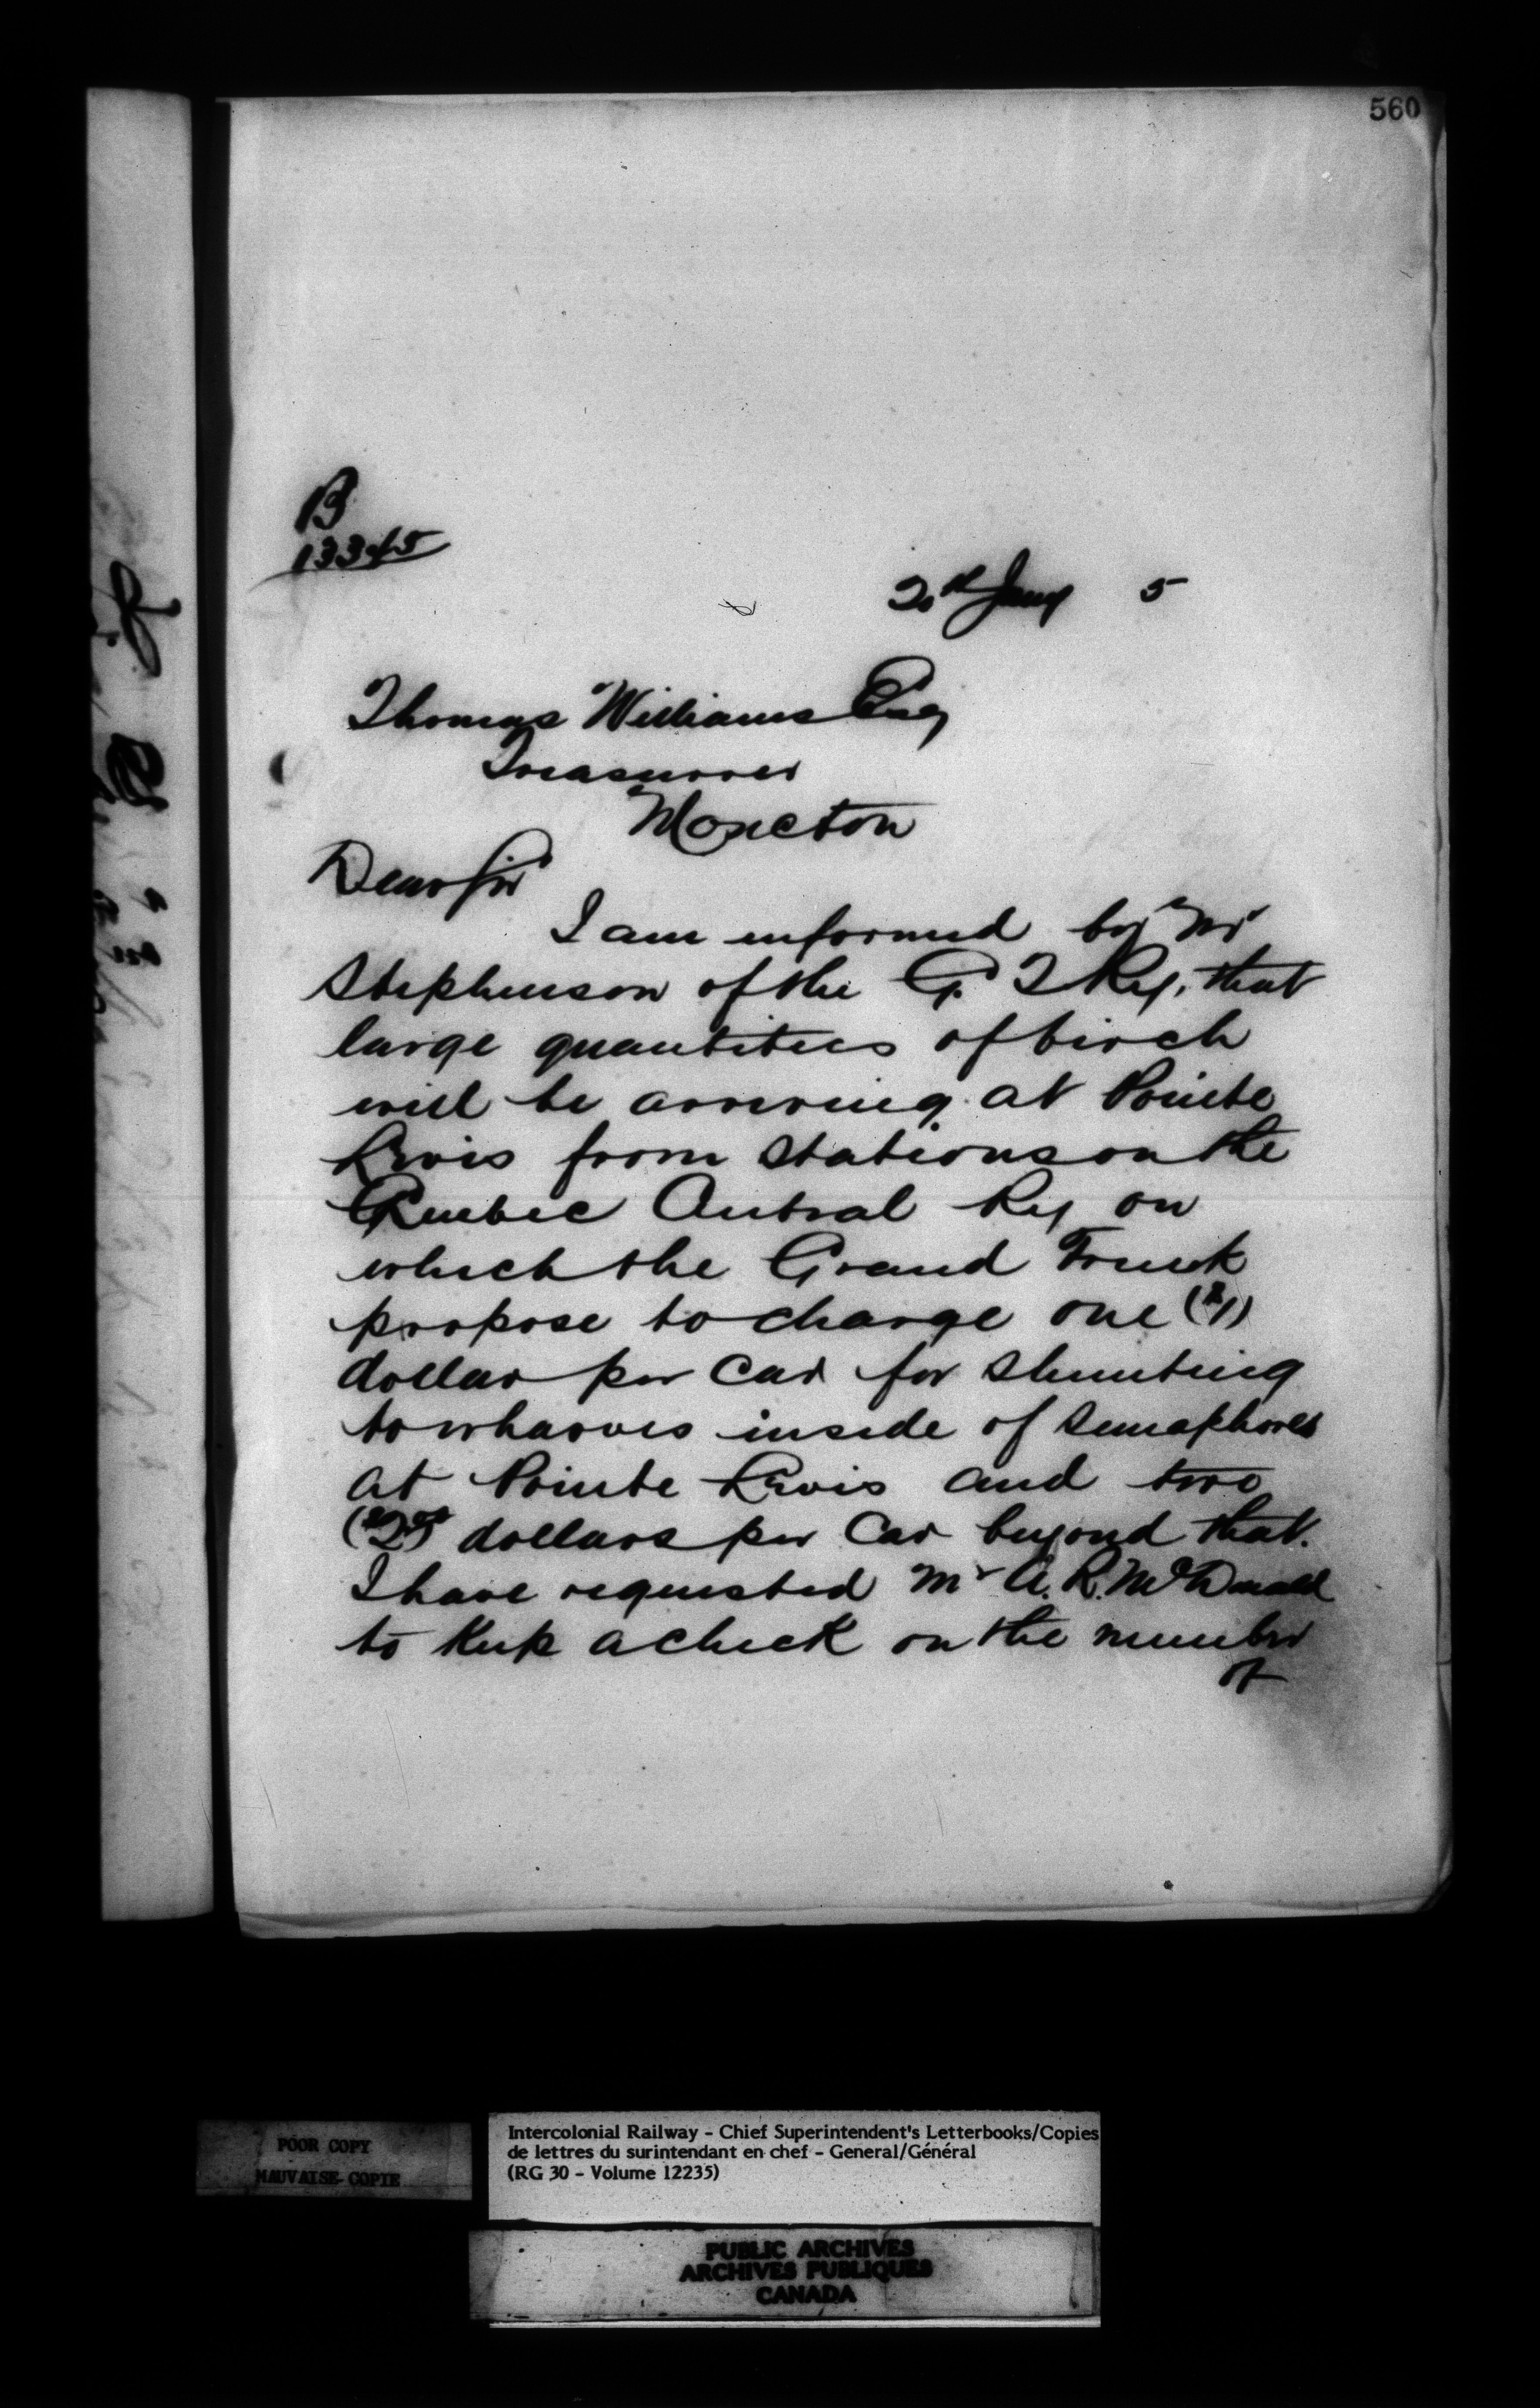 560
B
13345
20th Jany 5
Thomas Williams Esq
Treasurer
Moncton
Dear Sir
I am informed by Mr
Stephenson of the G. T Ry, that
large quantities of birch
will be arriving at Pointe
Levis from stations on the
Quebec Central Ry on
which the Grand Trunk
propose to charge one ($1)
dollar per car for shunting
to wharves inside of semaphores
at Pointe Levis and two
($2.00) dollars per car beyond that.
I have requested Mr A. R. McDonald
to keep a check on the number
of
POOR COPY
MAUVAISE COPIE
Intercolonial Railway - Chief Superintendent's Letterbooks/Copies
de lettres du surintendant en chef - General/Général
(RG 30 - Volume 12235)
PUBLIC ARCHIVES
ARCHIVES PUBLIQUES
CANADA